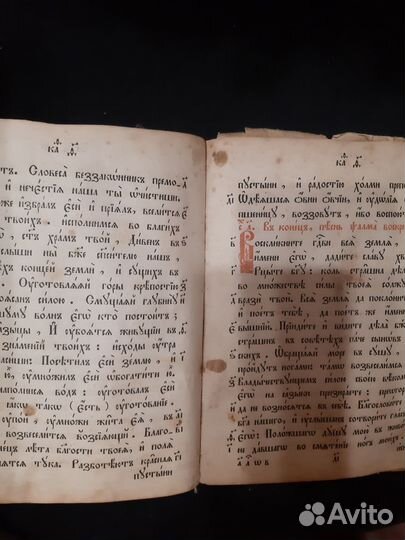 ка҃ ѱа҃
тъ. Словеса беззаконникъ премо
и нечестїѧ наша ты ѡчистиши.
же избралъ єси и прїѧлъ, вселитсѧ
твоихъ. исполнимсѧ во благихъ
, стъ храмъ твой, дивенъ въ
слыши ны бж҃е сп҃сителю нашъ
хъ концей земли, и сущихъ въ
. Оуготовлѧѧй горы крѣпостїю
ѡѧсанъ силою. Смущаѧй глубину
му волнъ єгѡ кто постоитъ;
зыцы, И убоѧтсѧ живущїи въ
знаменїй твоихъ: исходы оутра
сиши: Посѣтилъ єси землю, и
, оумножилъ єси ѡбогатити ю
наполнисѧ водъ: оуготовалъ єси
ꙗкѡ такѡ (єсть) оуготованїе.
упой, оумножи жита єѧ, въ
възвеселитсѧ возсїѧющи. Благо
ецъ лѣта благости твоеѧ, и полѧ
ѧтсѧ тука. Разботѣютъ краснаѧ
пустыни
ка҃ ѱа҃
пустыни, и радостїю холми препо
Ѡдѣѧшасѧ ѡвни ѡвчїи, и оудолїѧ
пшеницу, воззовутъ, ибо
Въ конецъ, пѣснь ѱалма воскре
Воскликните гд҃ви всѧ землѧ,
єгѡ, дадите славу х
Рцыте бг҃у: коль страшна дѣ
множествѣ силы твоеѧ солжу
врази твои. Всѧ землѧ да поклони
и поетъ тебѣ, да поетъ же имени
вышнїй. Прїидите и видите дѣла бж҃
страшенъ въ совѣтѣхъ паче сынъ
скихъ. Ѡбращаѧй море въ сушу,
пройдутъ ногами: тамѡ возвеселимсѧ
Владычествующемъ силою своею вѣкомъ
єгѡ на ѧзыки призираетѣ: преогор
да не возносѧтсѧ въ себѣ. Благословите
бг҃а нашего, и оуслышанъ сотворите гласъ
єгѡ: Положшагѡ душу мою въ живот
не давшагѡ во смѧтенїе ногъ моихъ.
Avito